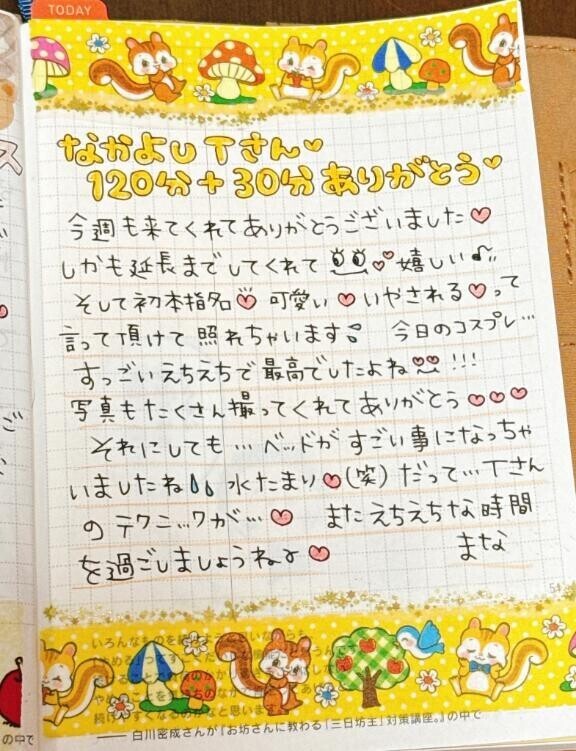 TODAY
なかよし Tさん♡
120分+30分ありがとう♡
今週も来てくれてありがとうございました♡
しかも延長までしてくれて ♡♡嬉しい♪
そして初本指名♡ 可愛い♡いやされる♡って
言って頂けて照れちゃいます 今日のコスプレ…
すっごいえちえちで最高でしたよね!!!
写真もたくさん撮ってくれてありがとう♡♡♡
それにしても…ベッドがすごい事になっちゃ
いましたね 水たまり♡(笑)だって…Tさん
のテクニックが…♡ またえちえちな時間
を過ごしましょうね♡
まな
―― 白川密成さんが『お坊さんに教わる「三日坊主」対策講座。』の中で
の中で